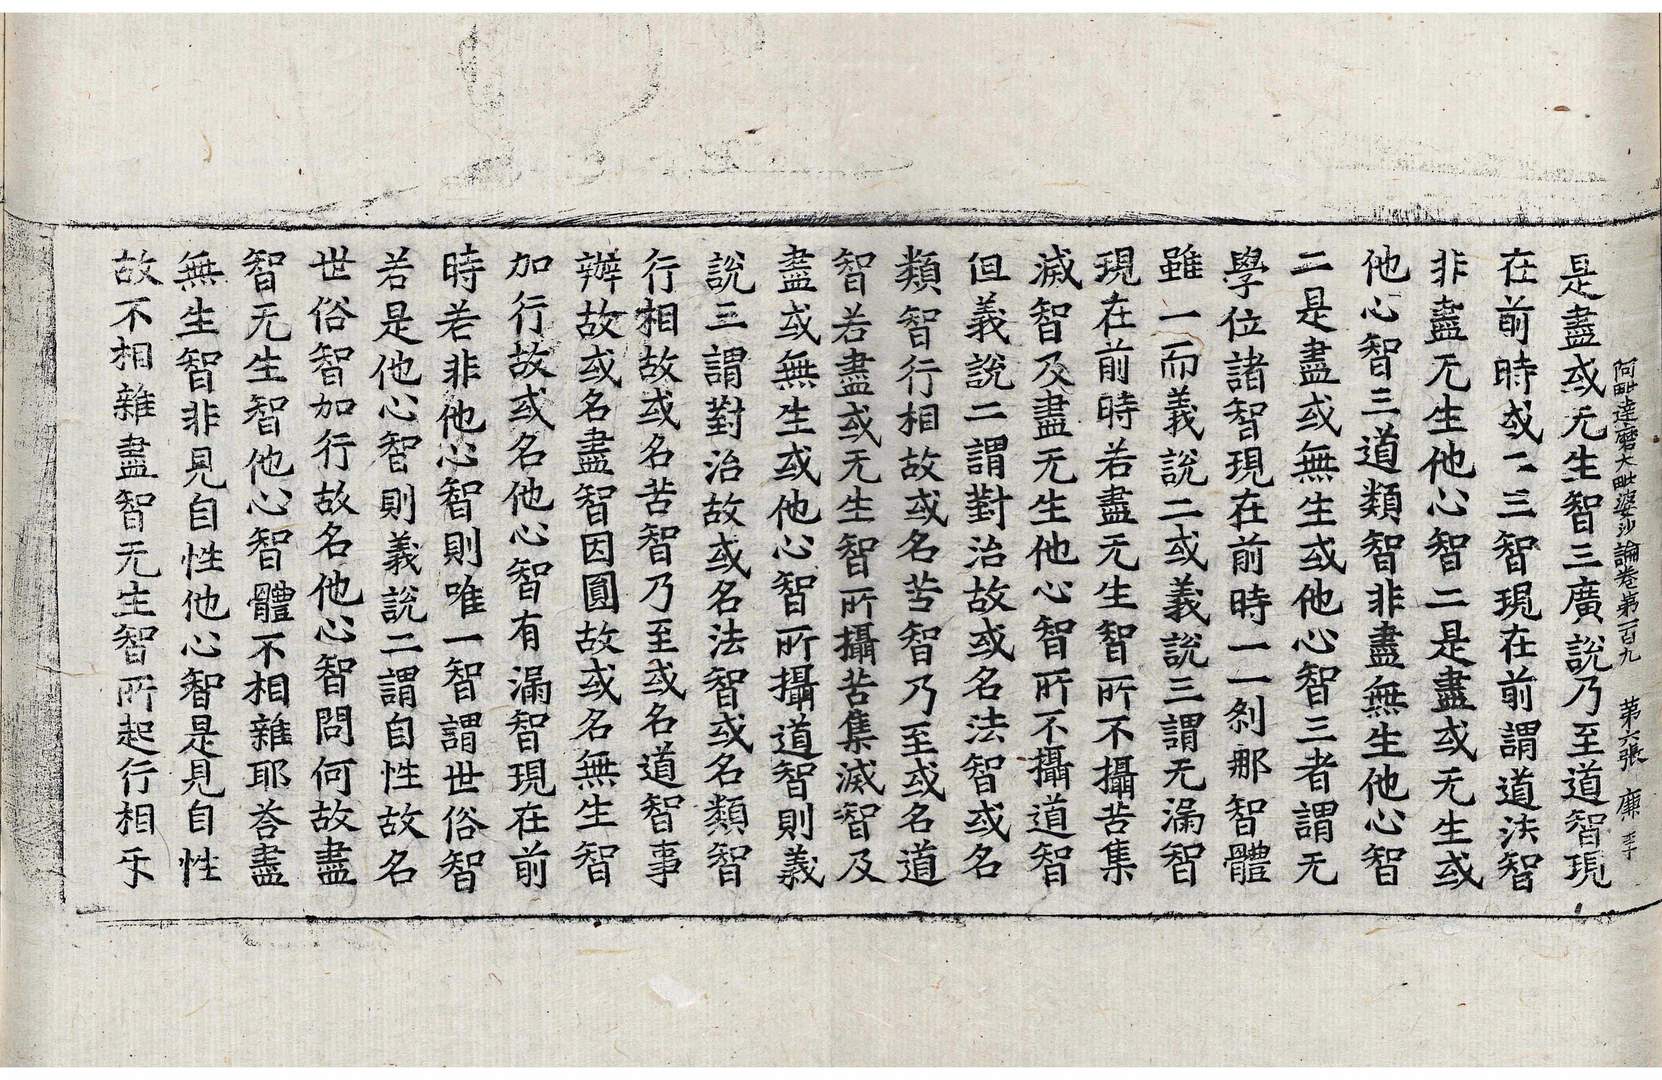 阿毗達磨大毗婆沙論卷第一百九 第六張 廉
是盡或无生智三廣說乃至道智現
在前時或二三智現在前謂道法智
非盡无生他心智二是盡或无生或
他心智三道類智非盡無生他心智
二是盡或無生或他心智三者謂无
學位諸智現在前時一一刹那智體
雖一而義說二或義說三謂无漏智
現在前時若盡无生智所不攝苦集
滅智及盡无生他心智所不攝道智
但義說二謂對治故或名法智或名
類智行相故或名苦智乃至或名道
智若盡或无生智所攝苦集滅智及
盡或無生或他心智所攝道智則義
說三謂對治故或名法智或名類智
行相故或名苦智乃至或名道智事
辦故或名盡智因圓故或名無生智
加行故或名他心智有漏智現在前
時若非他心智則唯一智謂世俗智
若是他心智則義說二謂自性故名
世俗智加行故名他心智問何故盡
智无生智他心智體不相雜耶荅盡
無生智非見自性他心智是見自性
故不相雜盡智无生智所起行相乐